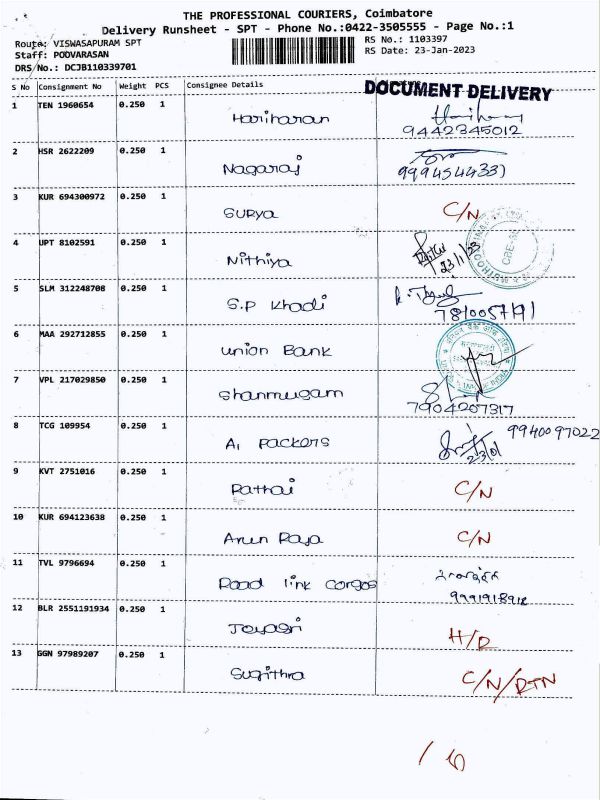 THE PROFESSIONAL COURIERS, Coimbatore
Delivery Runsheet - SPT - Phone No.:0422-3505555 - Page No.:1
Route: VISWASAPURAM SPT
RS No.: 1103397
Staff: POOVARASAN
RS Date: 23-Jan-2023
DRS/No.: DCJB110339701
S No Consignment No Weight PCS Consignee Details
DOCUMENT DELIVERY
1 TEN 1960654 0.250 1 Hariharan
9442345012
2 HSR 2622209 0.250 1 Nagaraj
3 KUR 694300972 0.250 1 Surya C/N
4 UPT 8102591 0.250 1 Nithiya
23/1/23
5 SLM 312248708 0.250 1 S.P Khadi
6 MAA 292712855 0.250 1 Union Bank
7 VPL 217029850 0.250 1 Shanmugam
7904207317
8 TCG 109954 0.250 1 A1 Packers 9940097022
23/01
9 KVT 2751016 0.250 1 Rathai C/N
10 KUR 694123638 0.250 1 Arun Raja C/N
11 TVL 9796694 0.250 1 Road link corgos
12 BLR 2551191934 0.250 1 Jeyasri H/D
13 GGN 97989207 0.250 1 Sugithra C/N/RTN